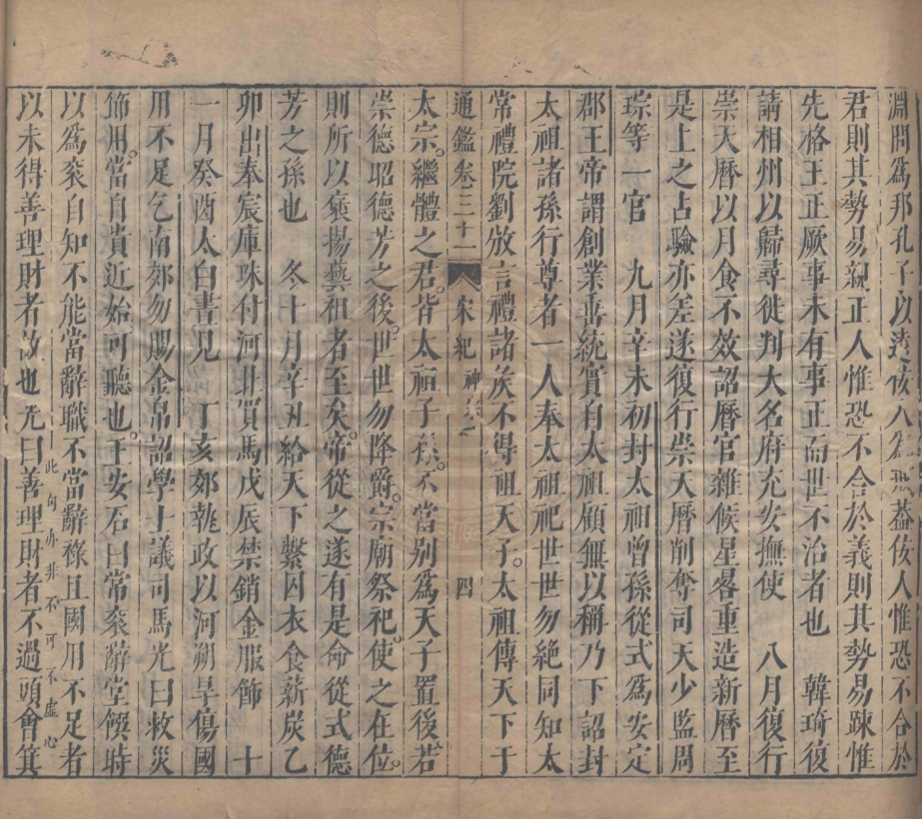 淵問爲邦孔子以遠佞人爲熟葢佞人惟恐不合於
君則其勢易親正人惟恐不合於義則其勢易踈惟
先格王正厥事未有事正而世不治者也　韓琦復
請相州以歸尋徙判大名府充安撫使　八月復行
崇天曆以月食不效詔曆官雜候星晷重造新曆至
是上之占驗亦差遂復行崇天曆削奪司天少監周
琮等一官　九月辛未初封太祖曾孫從式爲安定
郡王帝謂創業垂統實自太祖顧無以稱乃下詔封
太祖諸孫行尊者一人奉太祖祀世世勿絕同知太
常禮院劉攽言禮諸矦不得祖天子太祖傳天下于
通鑑卷三十一　宋紀　神宗　四
太宗繼體之君皆太祖子孫不當別爲天子置後若
崇德昭德芳之後世世勿降爵宗廟祭祀使之在位
則所以襃揚藝祖者至矣帝從之遂有是命從式德
芳之孫也　冬十月辛丑給天下繫囚衣食薪炭乙
卯出奉宸庫珠付河北買馬戊辰禁銷金服飾　十
一月癸酉太白晝見　丁亥郊執政以河朔旱傷國
用不足乞南郊勿賜金帛詔學士議司馬光曰救災
節用當自貴近始可聽也王安石曰常衮辭堂饌時
以爲衮自知不能當辭職不當辭祿且國用不足者
此句亦非不可不虛心
以未得善理財者故也光曰善理財者不過頭會箕